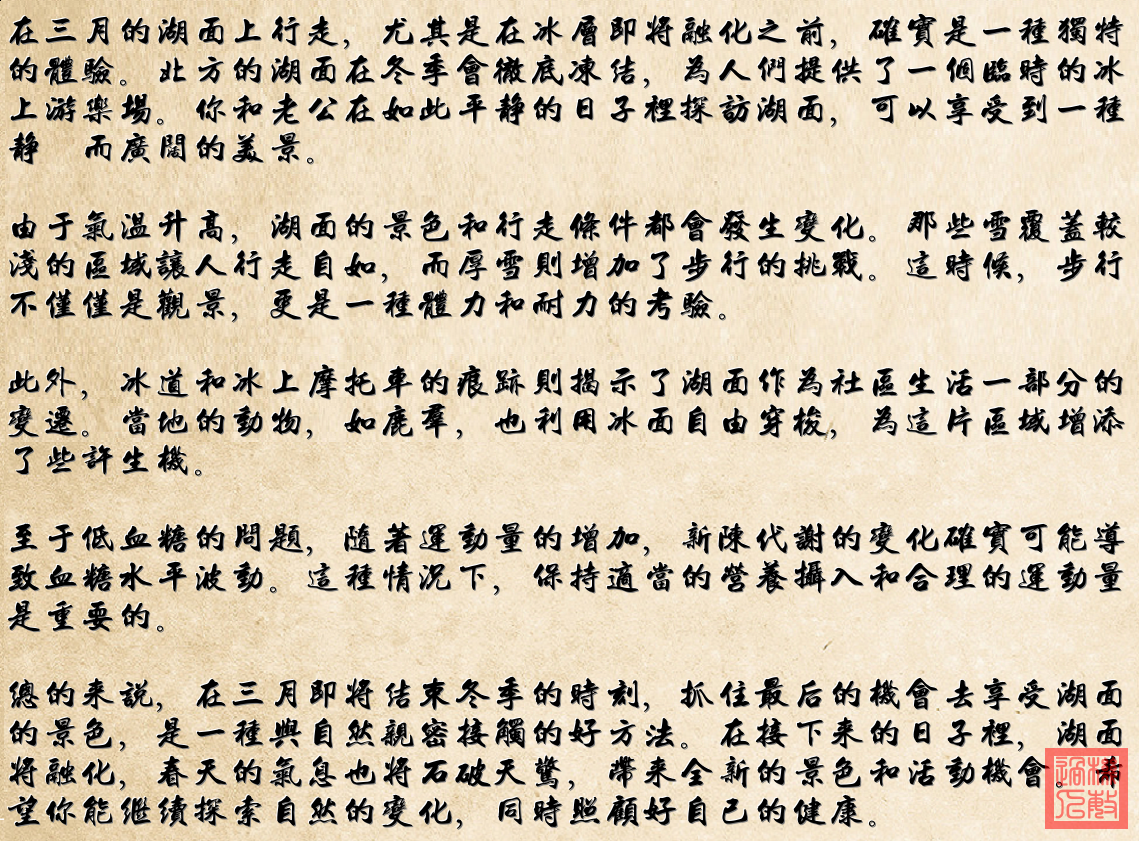 在三月的湖面上行走，尤其是在冰層即將融化之前，確實是一種獨特
的體驗。北方的湖面在冬季會徹底凍结，為人們提供了一個臨時的冰
上游樂場。你和老公在如此平静的日子裡探訪湖面，可以享受到一種
静　而廣闊的美景。
由于氣温升高，湖面的景色和行走條件都會發生變化。那些雪覆蓋較
淺的區域讓人行走自如，而厚雪則增加了步行的挑戰。這時候，步行
不僅僅是觀景，更是一種體力和耐力的考驗。
此外，冰道和冰上摩托車的痕跡則揭示了湖面作為社區生活一部分的
變遷。當地的動物，如鹿羣，也利用冰面自由穿梭，為這片區域增添
了些許生機。
至于低血糖的問題，隨著運動量的增加，新陳代謝的變化確實可能導
致血糖水平波動。這種情況下，保持適當的營養攝入和合理的運動量
是重要的。
總的来説，在三月即將结束冬季的時刻，抓住最后的機會去享受湖面
的景色，是一種與自然親密接觸的好方法。在接下来的日子裡，湖面
將融化，春天的氣息也將石破天驚，帶来全新的景色和活動機會。希
望你能继續探索自然的變化，同時照顧好自己的健康。